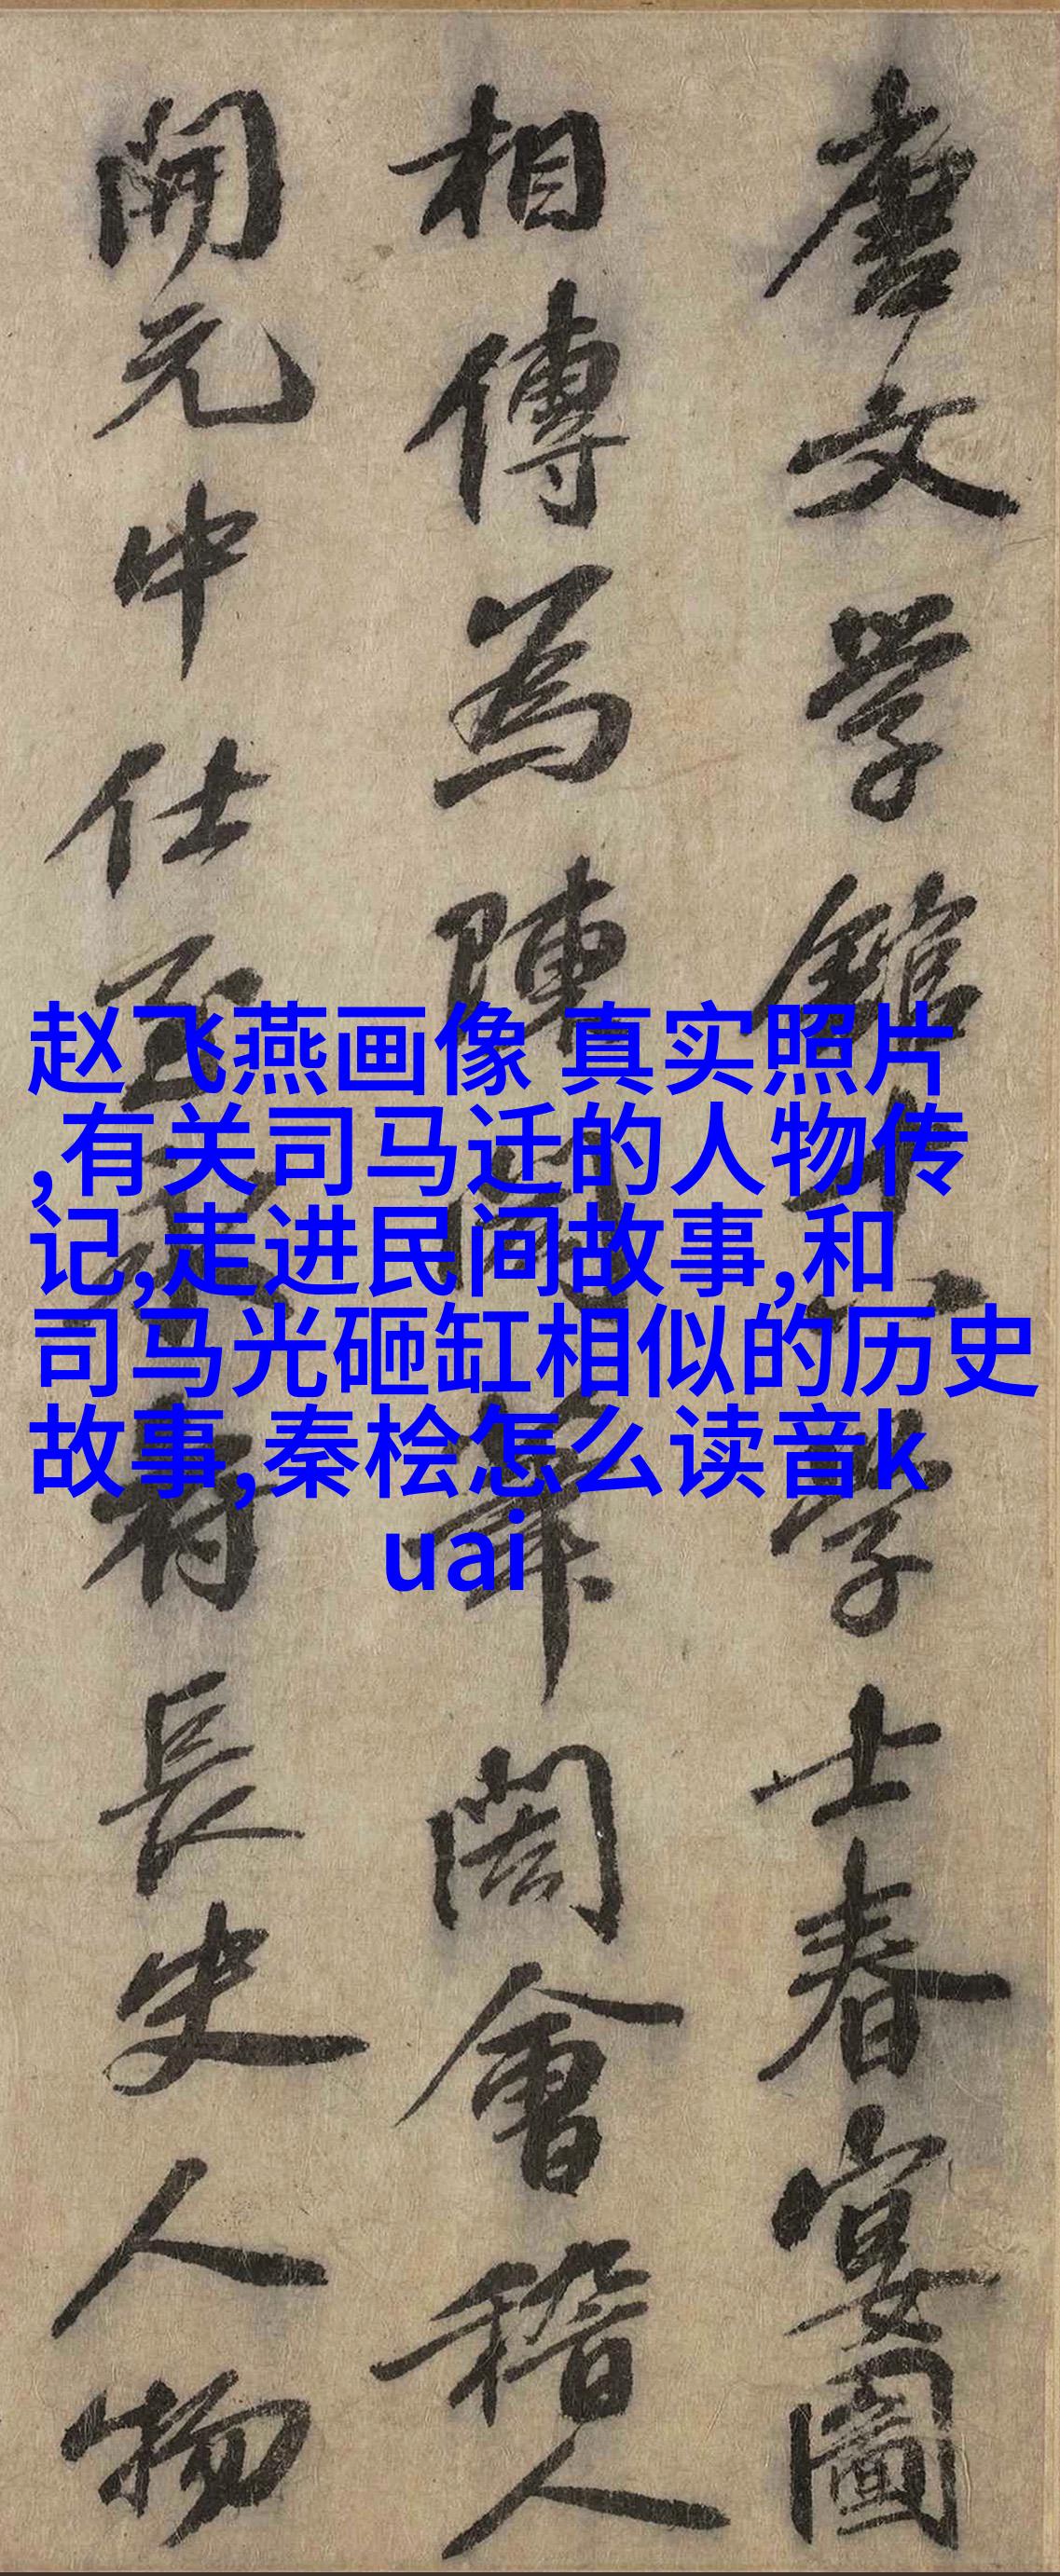 唐文学館十八学士春宴圖
相傳為陳閎筆閎會稽人
開元中仕至永府長史人物
赵飞燕画像 真实照片
,有关司马迁的人物传
记,走进民间故事,和
司马光砸缸相似的历史
故事,秦桧怎么读音k
uai